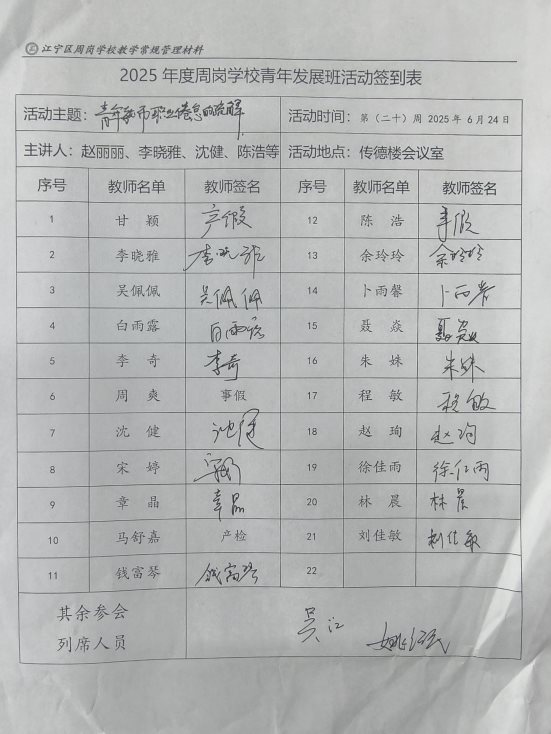 江宁区周岗学校教学常规管理材料
2025年度周岗学校青年发展班活动签到表
活动主题: 青年教师职业倦怠的化解 活动时间: 第（二十）周 2025年6月24日
主讲人: 赵丽丽、李晓雅、沈健、陈浩等 活动地点: 传德楼会议室
序号 教师名单 教师签名 序号 教师名单 教师签名
1 甘颖 产假 12 陈浩 事假
2 李晓雅 李晓雅 13 余玲玲 余玲玲
3 吴佩佩 吴佩佩 14 卜雨馨 卜雨馨
4 白雨露 白雨露 15 聂焱 聂焱
5 李奇 李奇 16 朱姝 朱姝
6 周爽 事假 17 程敏 程敏
7 沈健 沈健 18 赵珣 赵珣
8 宋婷 宋婷 19 徐佳雨 徐仁雨
9 章晶 章晶 20 林晨 林晨
10 马舒嘉 产检 21 刘佳敏 刘佳敏
11 钱富琴 钱富琴 22
其余参会
列席人员
吴江